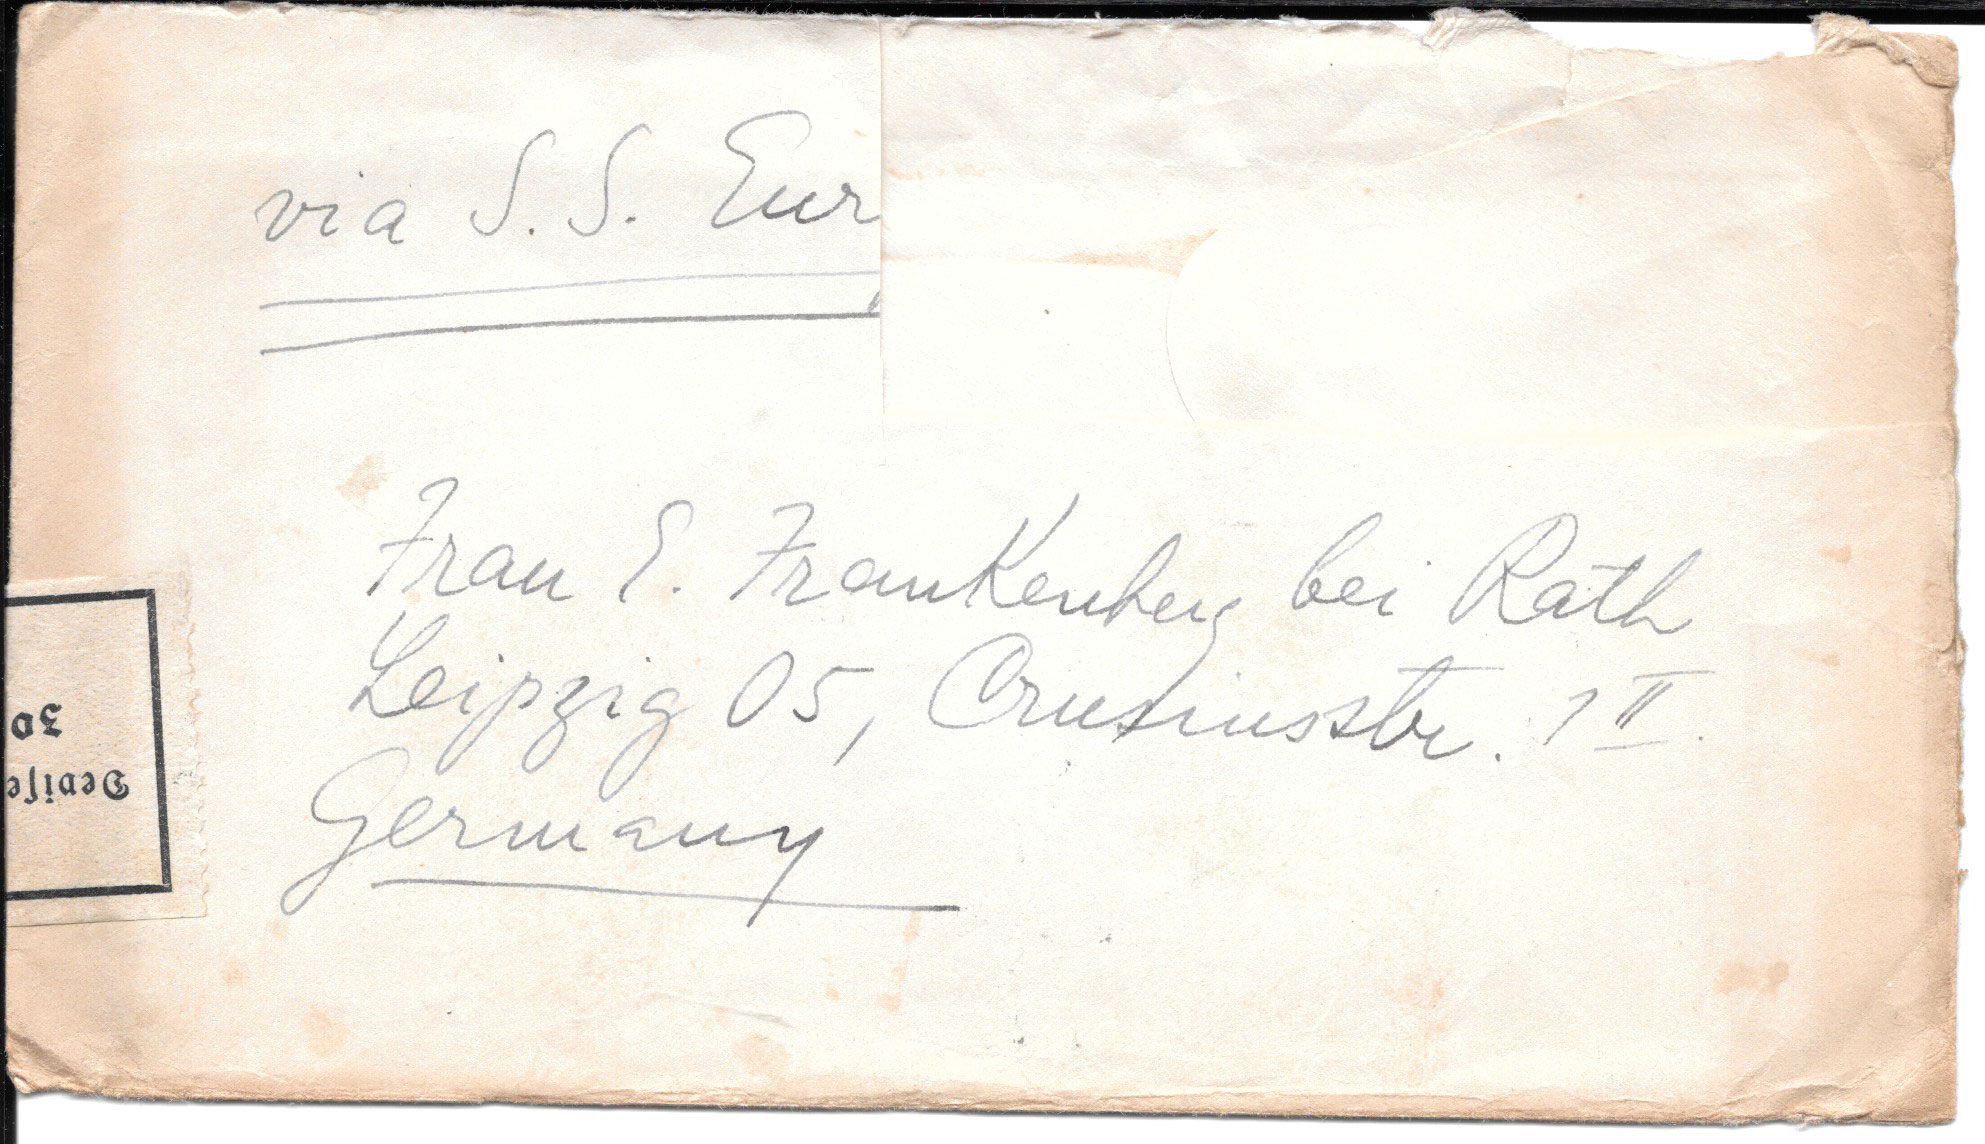 via S. S. Eur
Frau E. Frankenberg bei Rath
Leipzig O5, Crusiusstr. 1 II.
Germany
Devise
30